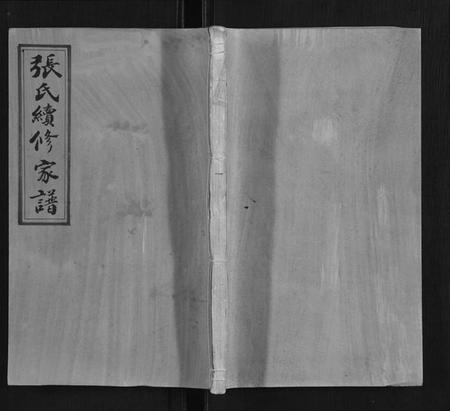 張氏續修家譜